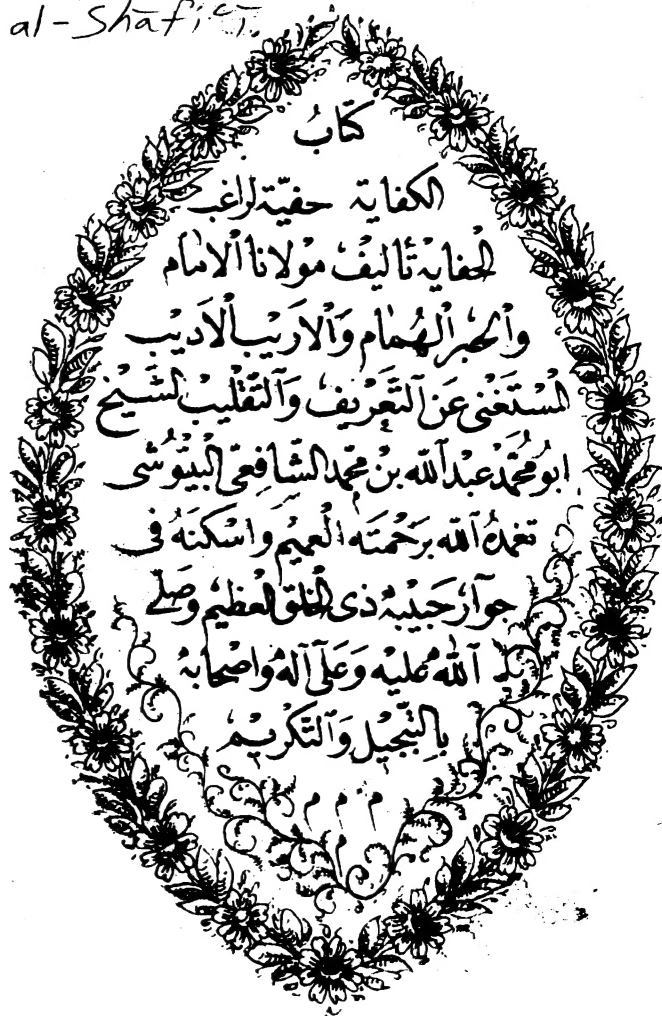 al-Shāfiʿī.
كتَابُ
الكفاية حفيّة لراغب
الحفاية تأليف مولانا الامام
والحبر الهُمام وَالاَريب الاَديب
المستَغنى عَن التَعَريف وَالتَقليب الشَيخ
ابو محُمّد عبد الله بن محمّد الشافعىّ البيتوُشى
تغمدهُ الله برَحْمتَه العميم وَاسْكنَهُ فى
جوآر حَبيبهُ ذى الخلق العظيم وَصَلے
الله عليه وَعَلى آله وَاصحابهُ
بِالتّبجيل وَالتّكريم
م م م
م